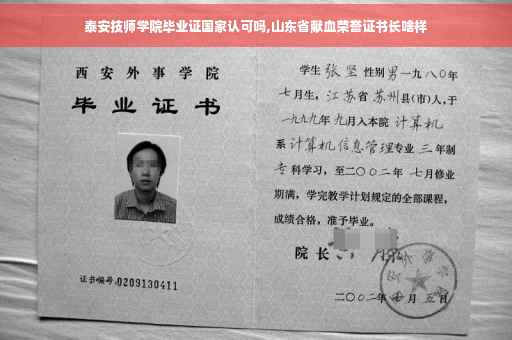 泰安技师学院毕业证国家认可吗,山东省献血荣誉证书长啥样
西安外事学院
毕业证书
证书编号:0209130411
学生 张坚 性别 男 一九八〇年
七月生, 江苏省 苏州县(市)人,于
一九九九年 九月入本院 计算机
系 计算机信息管理专业 三年制
专科学习,至二〇〇二年 七月修业
期满,学完教学计划规定的全部课程,
成绩合格,准予毕业。
院长
二〇〇二年 月五日